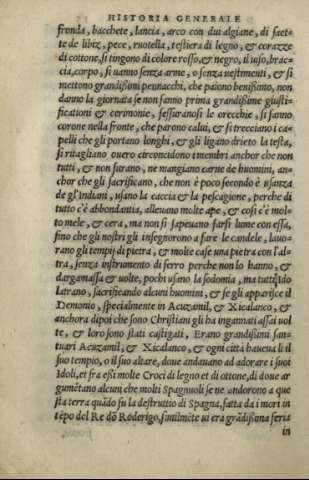 HISTORIA GENERALE
fronda, bacchete, lancia, arco con dui algiane, di saet-
te de libiz, pece, ruotella, testiera di legno, & corazze
di cottone, si tingono di colore rosso, & negro, il uiso, brac-
cia, corpo, si uanno senza arme, o senza uestimenti, & si
mettono grandissimi pennacchi, che paiono benissimo, non
danno la giornata se non fanno prima grandissime giusti-
ficationi & cerimonie, fessuransi le orecchie, si fanno
corone nella fronte, che parono calui, & si trecciano i ca-
pelli che gli portano longhi, & gli ligano drieto la testa,
si ritagliano ouero circoncidono i membri anchor che non
tutti, & non furano, ne mangiano carne de huomini, an-
chor che gli sacrificano, che non è poco secondo è usanza
de gl'Indiani, usano la caccia & la pescagione, perche di
tutto c'è abbondantia, alleuano molte ape, & cosi c'è mol-
to mele, & cera, ma non si sapeuano farsi lume con essa,
fino che gli nostri gli insegnorono a fare le candele, lauo-
rano gli tempij di pietra, & molte case una pietra con l'al-
tra, senza instrumento di ferro perche non lo hanno, &
dargamassa & uolte, pochi usano la sodomia, ma tutti ido
latrano, sacrificando alcuni huomini, & se gli apparisce il
Demonio, specialmente in Acuzamil, & Xicalanco, &
anchora dipoi che sono Christiani gli ha ingannati assai uol
te, & loro sono stati castigati, Erano grandissimi san-
tuari Acuzamil, & Xicalanco, & ogni città haueua li il
suo tempio, o il suo altare, doue andauano ad adorare i suoi
Idoli, et fra essi molte Croci di legno et di ottone, di doue ar
gumẽtano alcuni che molti Spagnuoli se ne andorono a que
sta terra quãdo fu la destruttio di Spagna, fatta da i mori in
tẽpo del Re dõ Roderigo, similmẽte ui era grãdissima feria
in